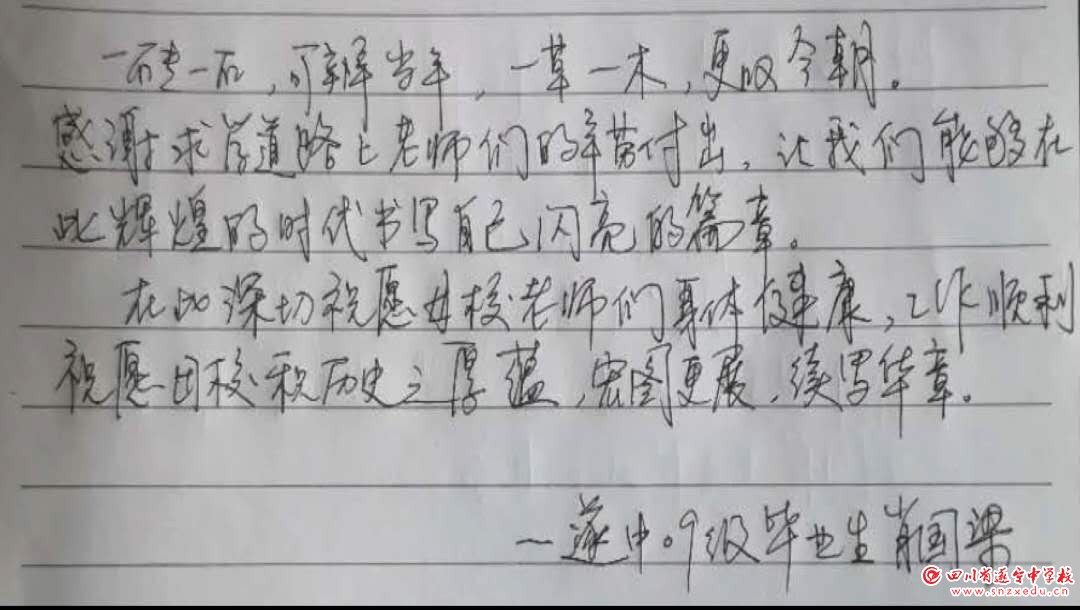 一砖一石，可辨当年，一草一木，更叹今朝。
感谢求学道路上老师们的辛苦付出，让我们能够在
此辉煌的时代书写自己闪亮的篇章。
在此深切祝愿母校老师们身体健康，工作顺利
祝愿母校积历史之厚蕴，宏图更展，续写华章。
—遂中09级毕业生肖国梁
四川省遂宁中学校
www.snzxedu.cn